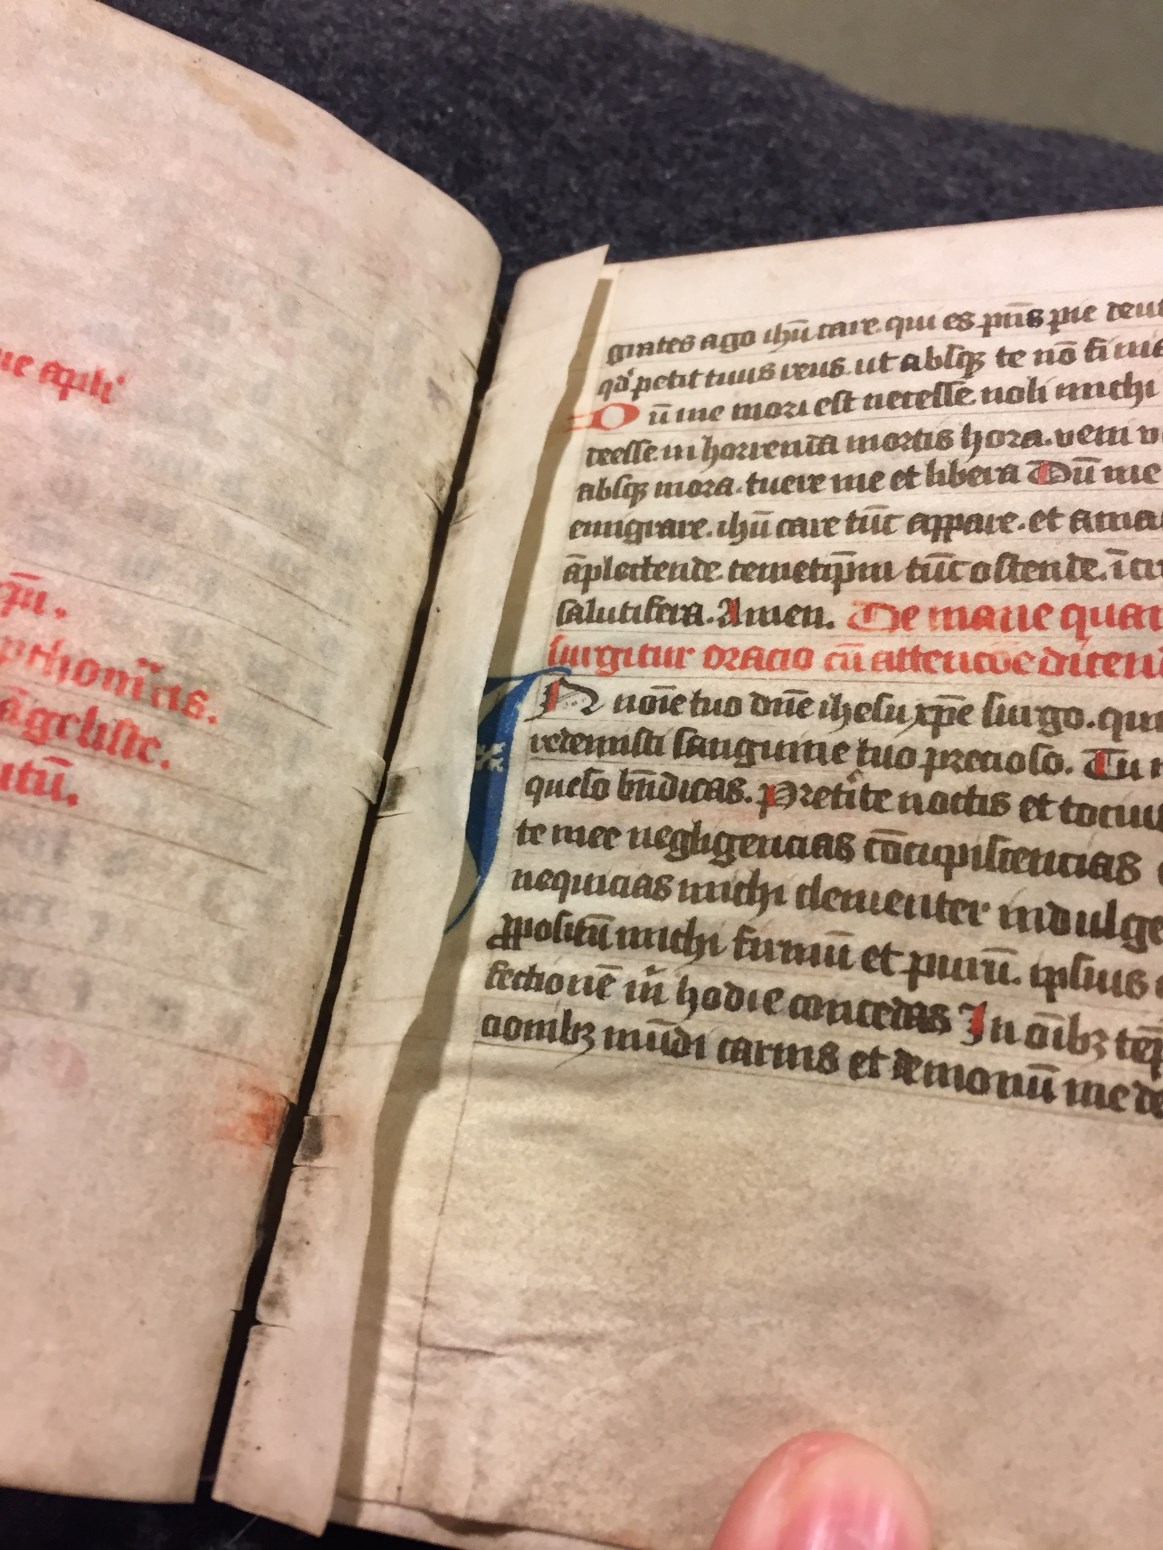 ue apłi
qm̄.
ptho
āgeliste.
utū.
grates ago ihū care. qui es pn̄s pie
qd petit tuus reus. ut absqꝫ te nō
Dū me mori est necesse. noli michi
deesse. in horrenda mortis hora. veni
absqꝫ mora. tuere me et libera Dū me
emigrare. ihū care tūc appare. et
āplectende. temetip̄m tūc ostende. ī
salutifera. Amen. De mane
surgitur oracio cū
In noīe tuo dn̄e ihesu xp̄e surgo. qui
redemisti sanguine tuo precioso. Tu
queso bn̄dicas. Preterite noctis et
te mee negligencias cōcupiscencias
nequicias michi clementer indulge
ꝓpositū michi firmū et purū. ipsius
fectionē m̄ hodie concedas In oībꝫ
cionibꝫ mūdi carnis et demonū me